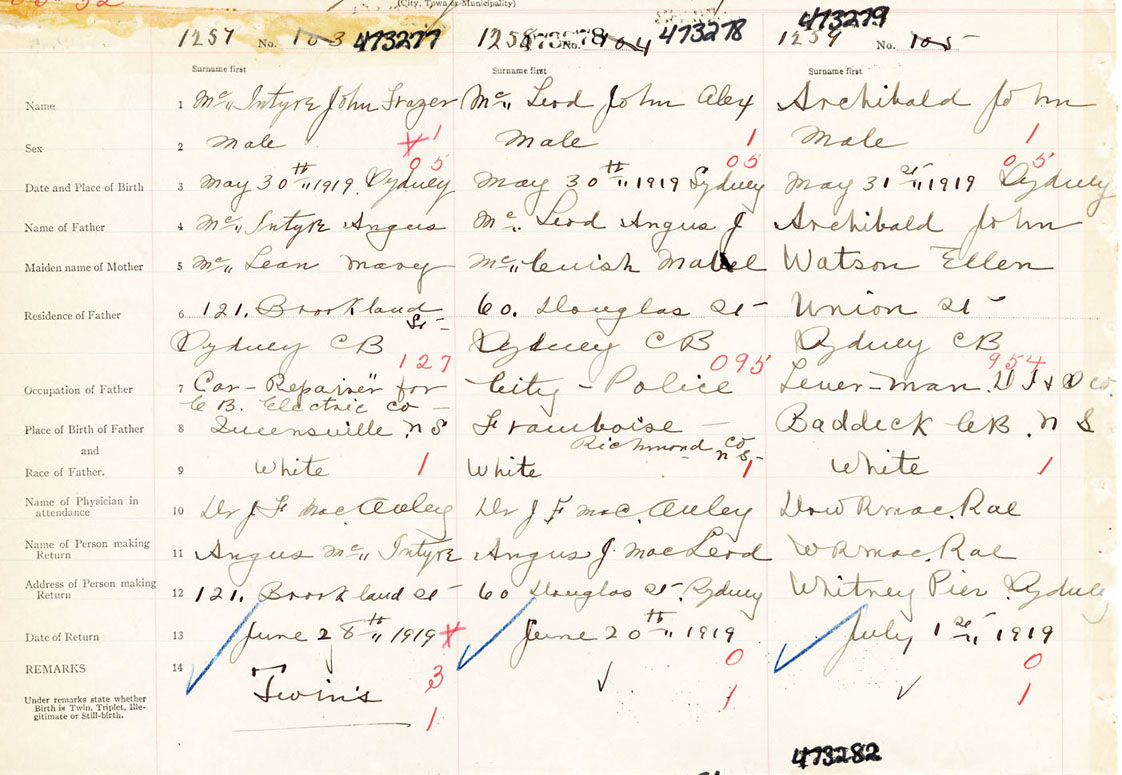 (City, Town or Municipality)
473279
1257 No. 103 473277 1258 473278 No. 104 473278 1259 No. 105
Surname first Surname first Surname first
Name 1 Mc,, Intyre John Frazer Mc,, Leod John Alex Archibald John
Sex 2 Male 1 Male 1 Male 1
05 05 05
Date and Place of Birth 3 May 30th,, 1919 Sydney May 30th,, 1919 Sydney May 31st,, 1919 Sydney
Name of Father 4 Mc,, Intyre Angus Mc. Leod Angus J Archibald John
Maiden name of Mother 5 Mc,, Lean Mary Mc,, Cuish Mabel Watson Ellen
Residence of Father 6 121. Brookland St - 60. Douglas St - Union St -
Sydney CB Sydney CB Sydney CB
127 095 954
Occupation of Father 7 Car - Repairer for City - Police Lever-man. D I & S Co
C B. Electric Co -
Place of Birth of Father 8 Queensville, N S Framboise - Baddeck CB. N S
and Richmond Co N S -
Race of Father. 9 White 1 White 1 White 1
Name of Physician in
attendance 10 Dr J F MacAuley Dr J F MacAuley Dr W R MacRae
Name of Person making
Return 11 Angus Mc,, Intyre Angus J. MacLeod W R MacRae
Address of Person making
Return 12 121. Brookland St - 60 Douglas St. Sydney Whitney Pier Sydney
Date of Return 13 June 28th,, 1919 June 20th,, 1919 July 1st,, 1919
REMARKS 14 3 0 0
Twin's
Under remarks state whether
Birth is Twin, Triplet, Ille-
gitimate or Still-birth. 1 1 1
473282